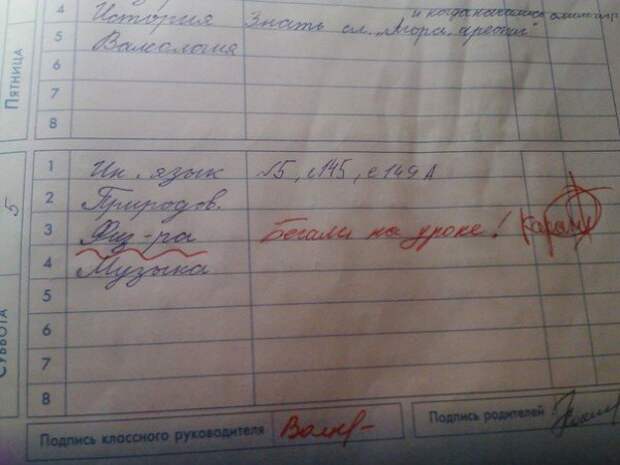 и когда начались
4 История Знать сл. „Мора, ареопаг"
5 Валеология
6
7
8
ПЯТНИЦА
1 Ин. язык №5, с145, с149А
2 Природов.
3 Физ-ра Бегали на уроке!
4 Музыка
5
6
7
8
СУББОТА 5
Подпись классного руководителя
Подпись родителей